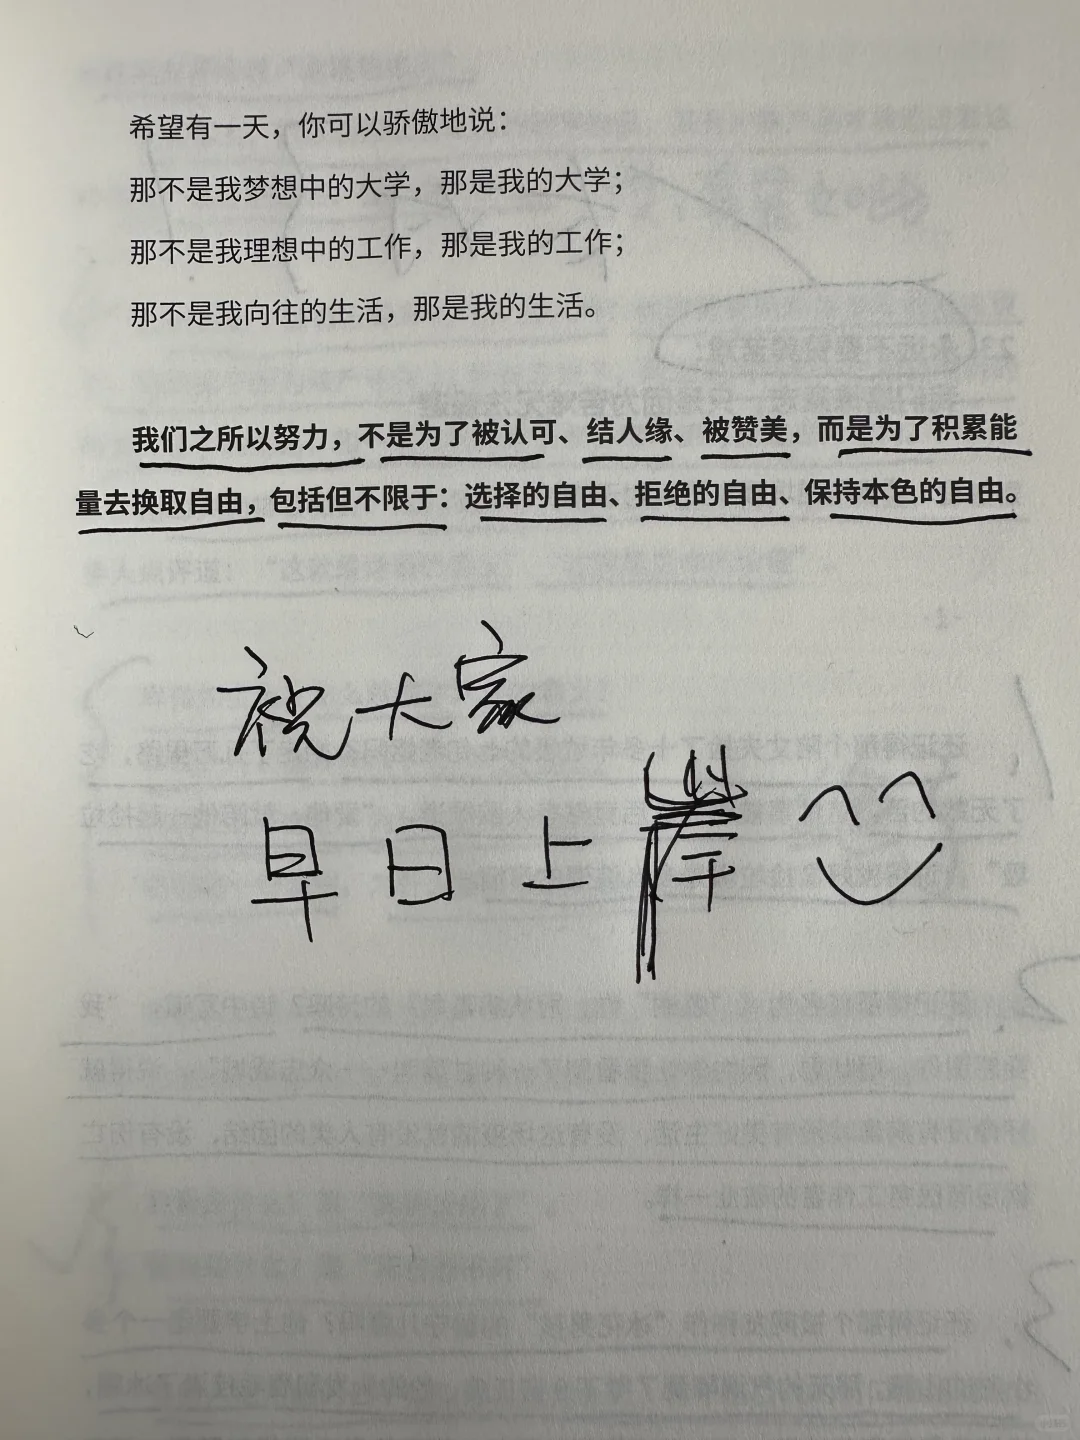 希望有一天，你可以骄傲地说：
那不是我梦想中的大学，那是我的大学；
那不是我理想中的工作，那是我的工作；
那不是我向往的生活，那是我的生活。
我们之所以努力，不是为了被认可、结人缘、被赞美，而是为了积累能
量去换取自由，包括但不限于：选择的自由、拒绝的自由、保持本色的自由。
祝大家
早日上岸